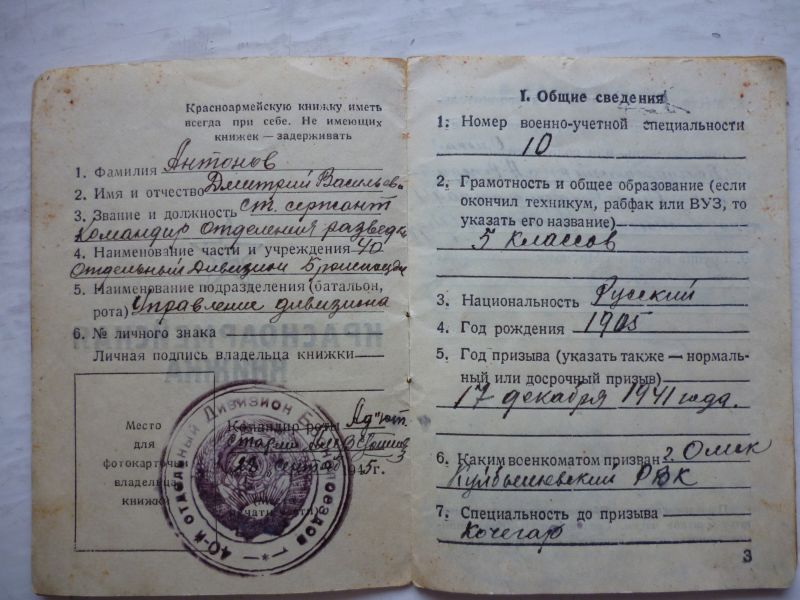 Красноармейскую книжку иметь
всегда при себе. Не имеющих
книжек — задерживать
1. Фамилия Антонов
2. Имя и отчество Дмитрий Васильев
3. Звание и должность Ст. сержант
Командир Отделения разведки
4. Наименование части и учреждения 40
Отдельный Дивизион Бронепоезд
5. Наименование подразделения (батальон,
рота) Управление дивизиона
6. № личного знака
Личная подпись владельца книжки
КРАСНОАРМЕЙСКАЯ
КНИЖКА
Место
для
фотокарточки
владельца
книжки
Командир роты Адъют.
Старший
1945 г.
40-й Отдельный Дивизион Бронепоездов
I. Общие сведения
1. Номер военно-учетной специальности
10
2. Грамотность и общее образование (если
окончил техникум, рабфак или ВУЗ, то
указать его название)
5 классов
3. Национальность Русский
4. Год рождения 1905
5. Год призыва (указать также — нормаль-
ный или досрочный призыв)
17 декабря 1941 года.
6. Каким военкоматом призван г. Омск
Куйбышевский РВК
7. Специальность до призыва
Кочегар
3